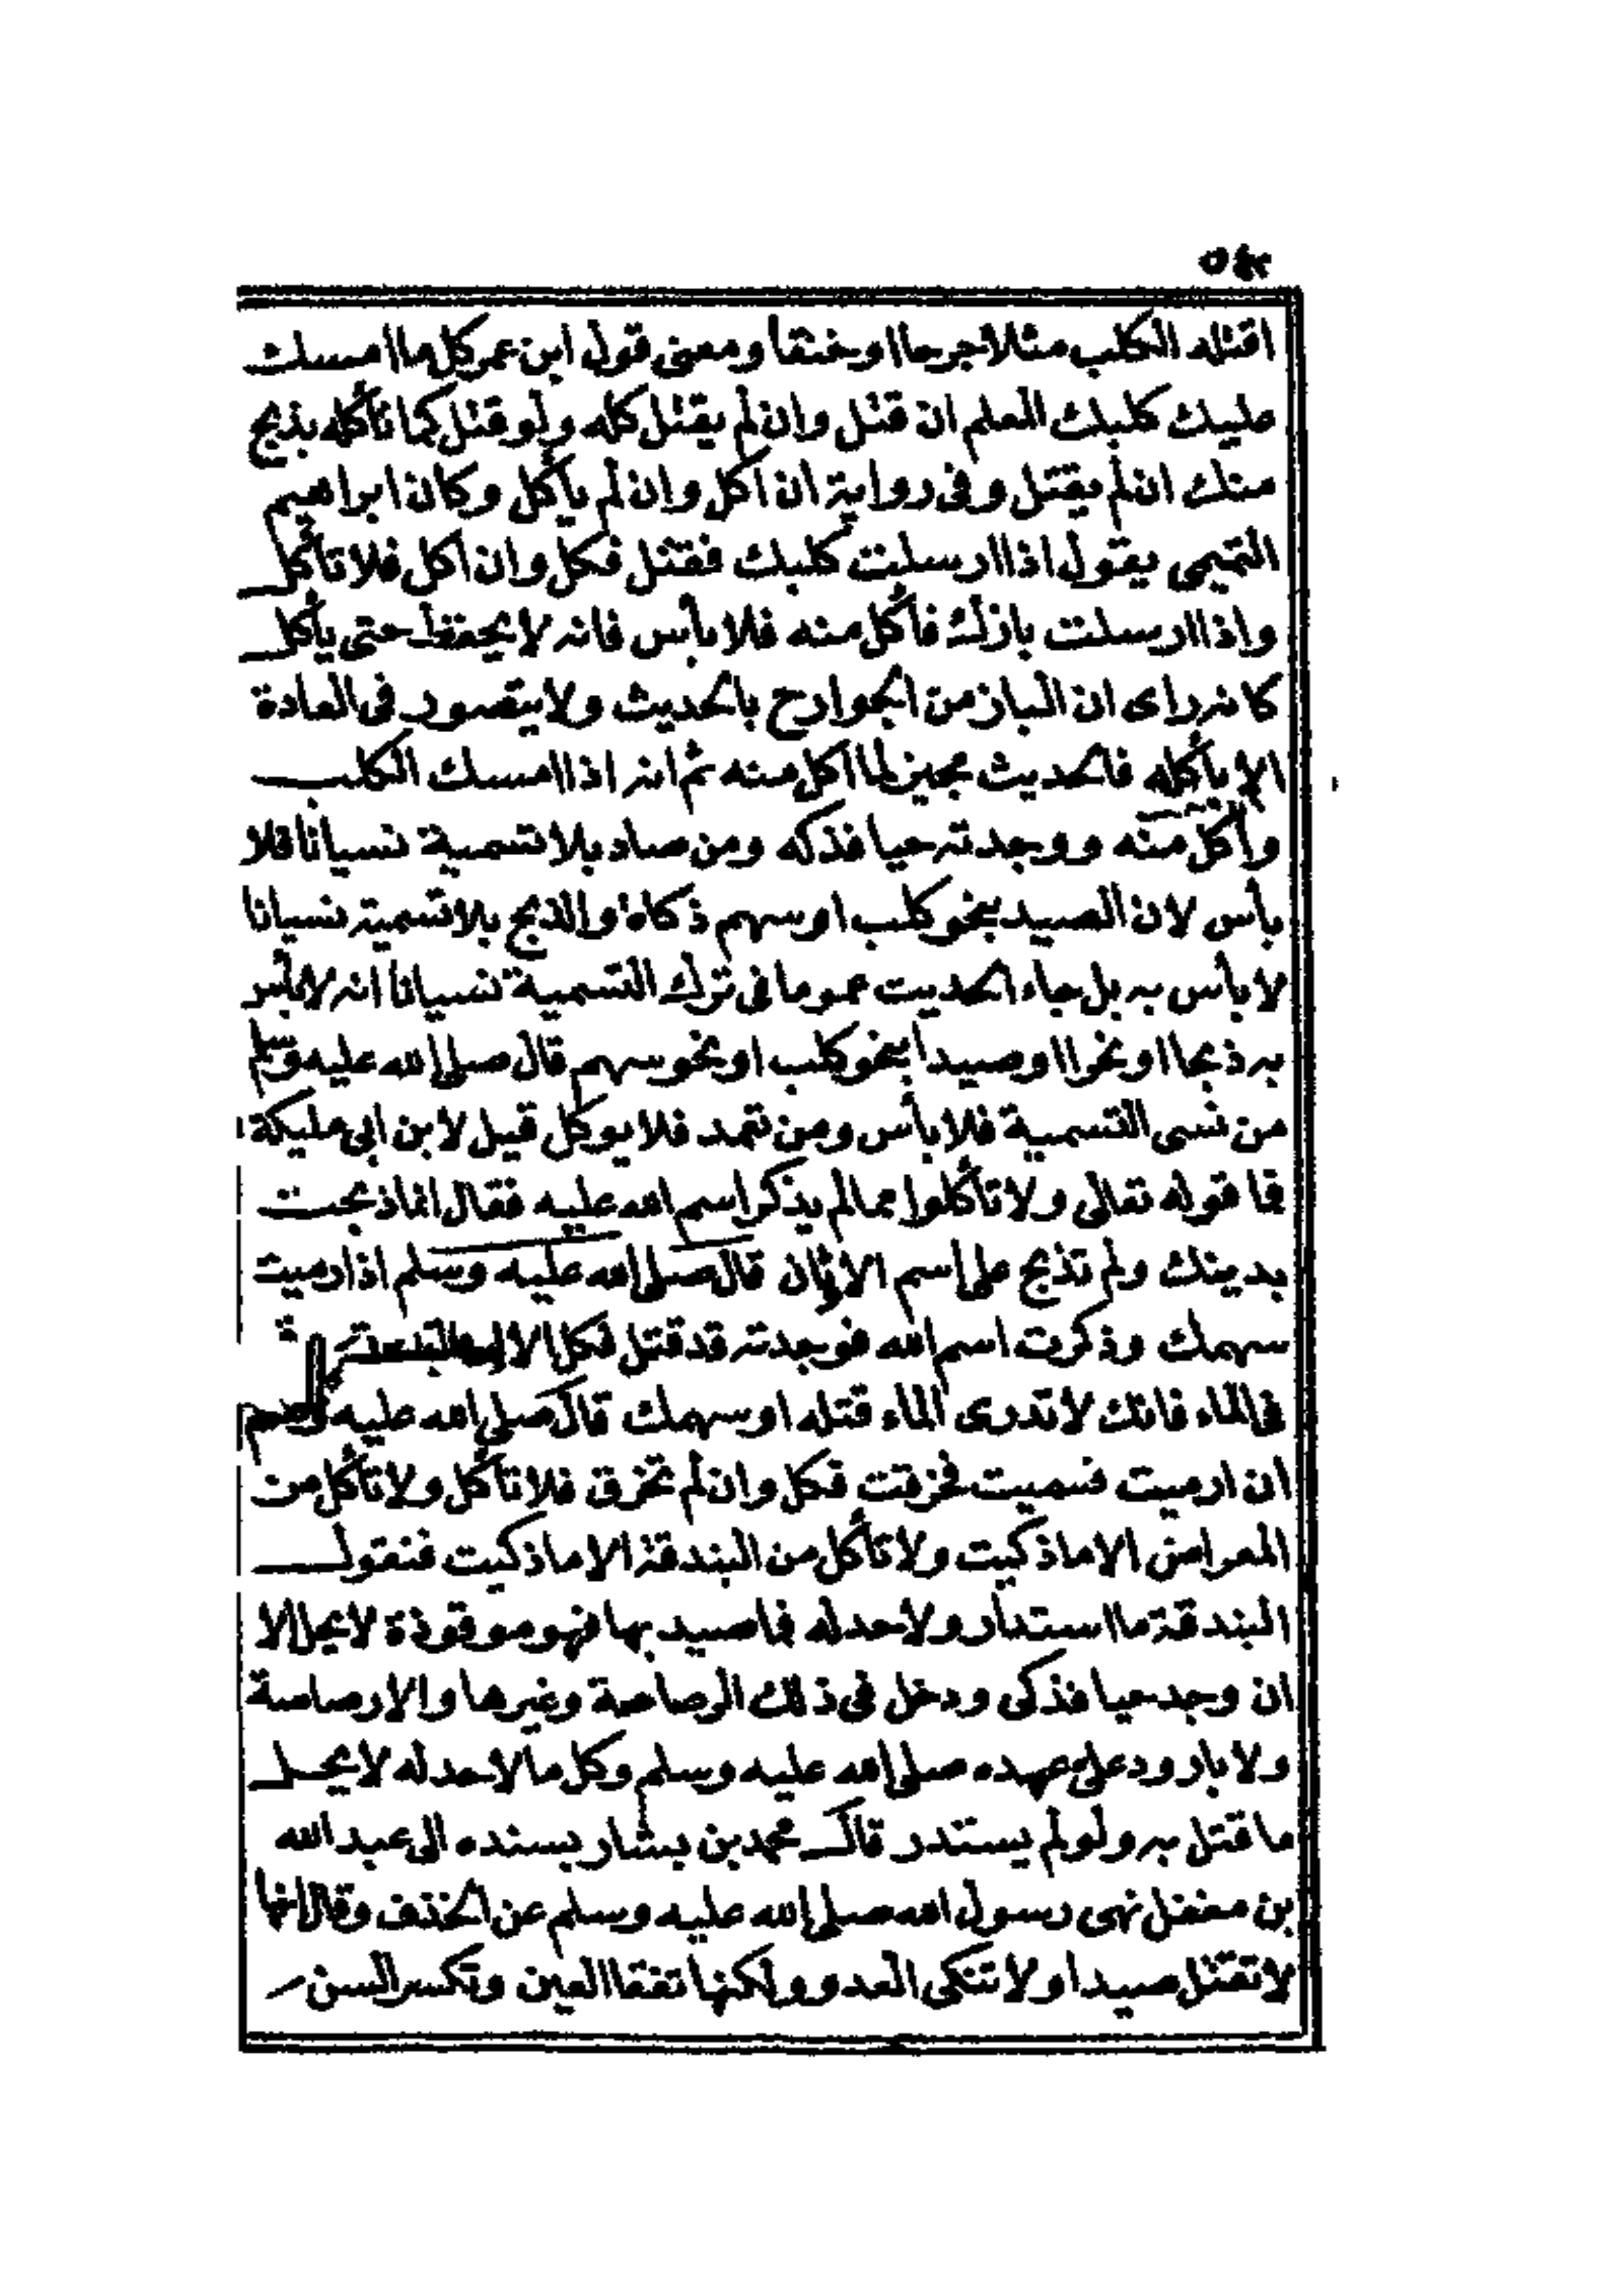 اقتله الكلب مثلا جرحا او خنقا ومعنى قول ابن عمر كل ما امسك
عليك كلبك المعلم ان قتل وان لم يقتل كله ولو قتل كما تأكله بذبح
منك ان لم يقتل وفى رواية ان اكل وان لم يأكل وكان ابراهيم
التميمى يقول اذا ارسلت كلبك فقتل فكل وان اكل فلا تأكل
واذا ارسلت بازك فأكل منه فلا بأس فانه لا يحفظ حتى يأكل
كانه راى ان الباز من الجوارح بالحديث ولا يتصور فى العادة
الا بأكله فالحديث مجيز لما اكل منه ثم انه اذا امسك الكلب
وأكل منه ووجدته حيا فذكه ومن صاد بلا تسمية نسيانا فلا
بأس لان الصيد بنحو كلب او سهم ذكاة والذبح بلا تسمية نسيانا
لا بأس به بل جاء الحديث عموما فى ترك التسمية نسيانا انه لا بأس
به ذبحا او نحرا او صيدا بنحو كلب او بنحو سهم قال صلى الله عليه وسلم
من نسى التسمية فلا بأس ومن تعمد فلا يوكل قيل لابن ابى مليكة
فما قوله تعالى ولا تأكلوا مما لم يذكر اسم الله عليه فقال انما ذبحت
بدينك ولم تذبح على اسم الاوثان قال صلى الله عليه وسلم اذا رميت
سهمك وذكرت اسم الله فوجدته قد قتل فكل الا
فى الماء فانك لا تدرى الماء قتله او سهمك قال صلى الله عليه وسلم
ان ارميت فسميت فخزقت فكل وان لم تخزق فلا تأكل ولا تأكل من
المعراض الا ما ذكيت ولا تأكل من البندقة الا ما ذكيت فنقول
البندقة ما استدار ولا حد له فما صيد بها فهو موقوذة لا يحل الا
ان وجد حيا فذكى ودخل فى ذلك الرصاصة وغيرها والا رصاصة
ولا بارود على عهده صلى الله عليه وسلم وكل ما لا حد له لا يحل
ما قتل به ولو لم يستدر قال محمد بن بشار بسنده الى عبد الله
بن مغفل نهى رسول الله صلى الله عليه وسلم عن الخذف وقال انها
لا تقتل صيدا ولا تنكى العدو ولكنها تفقا العين وتكسر السن